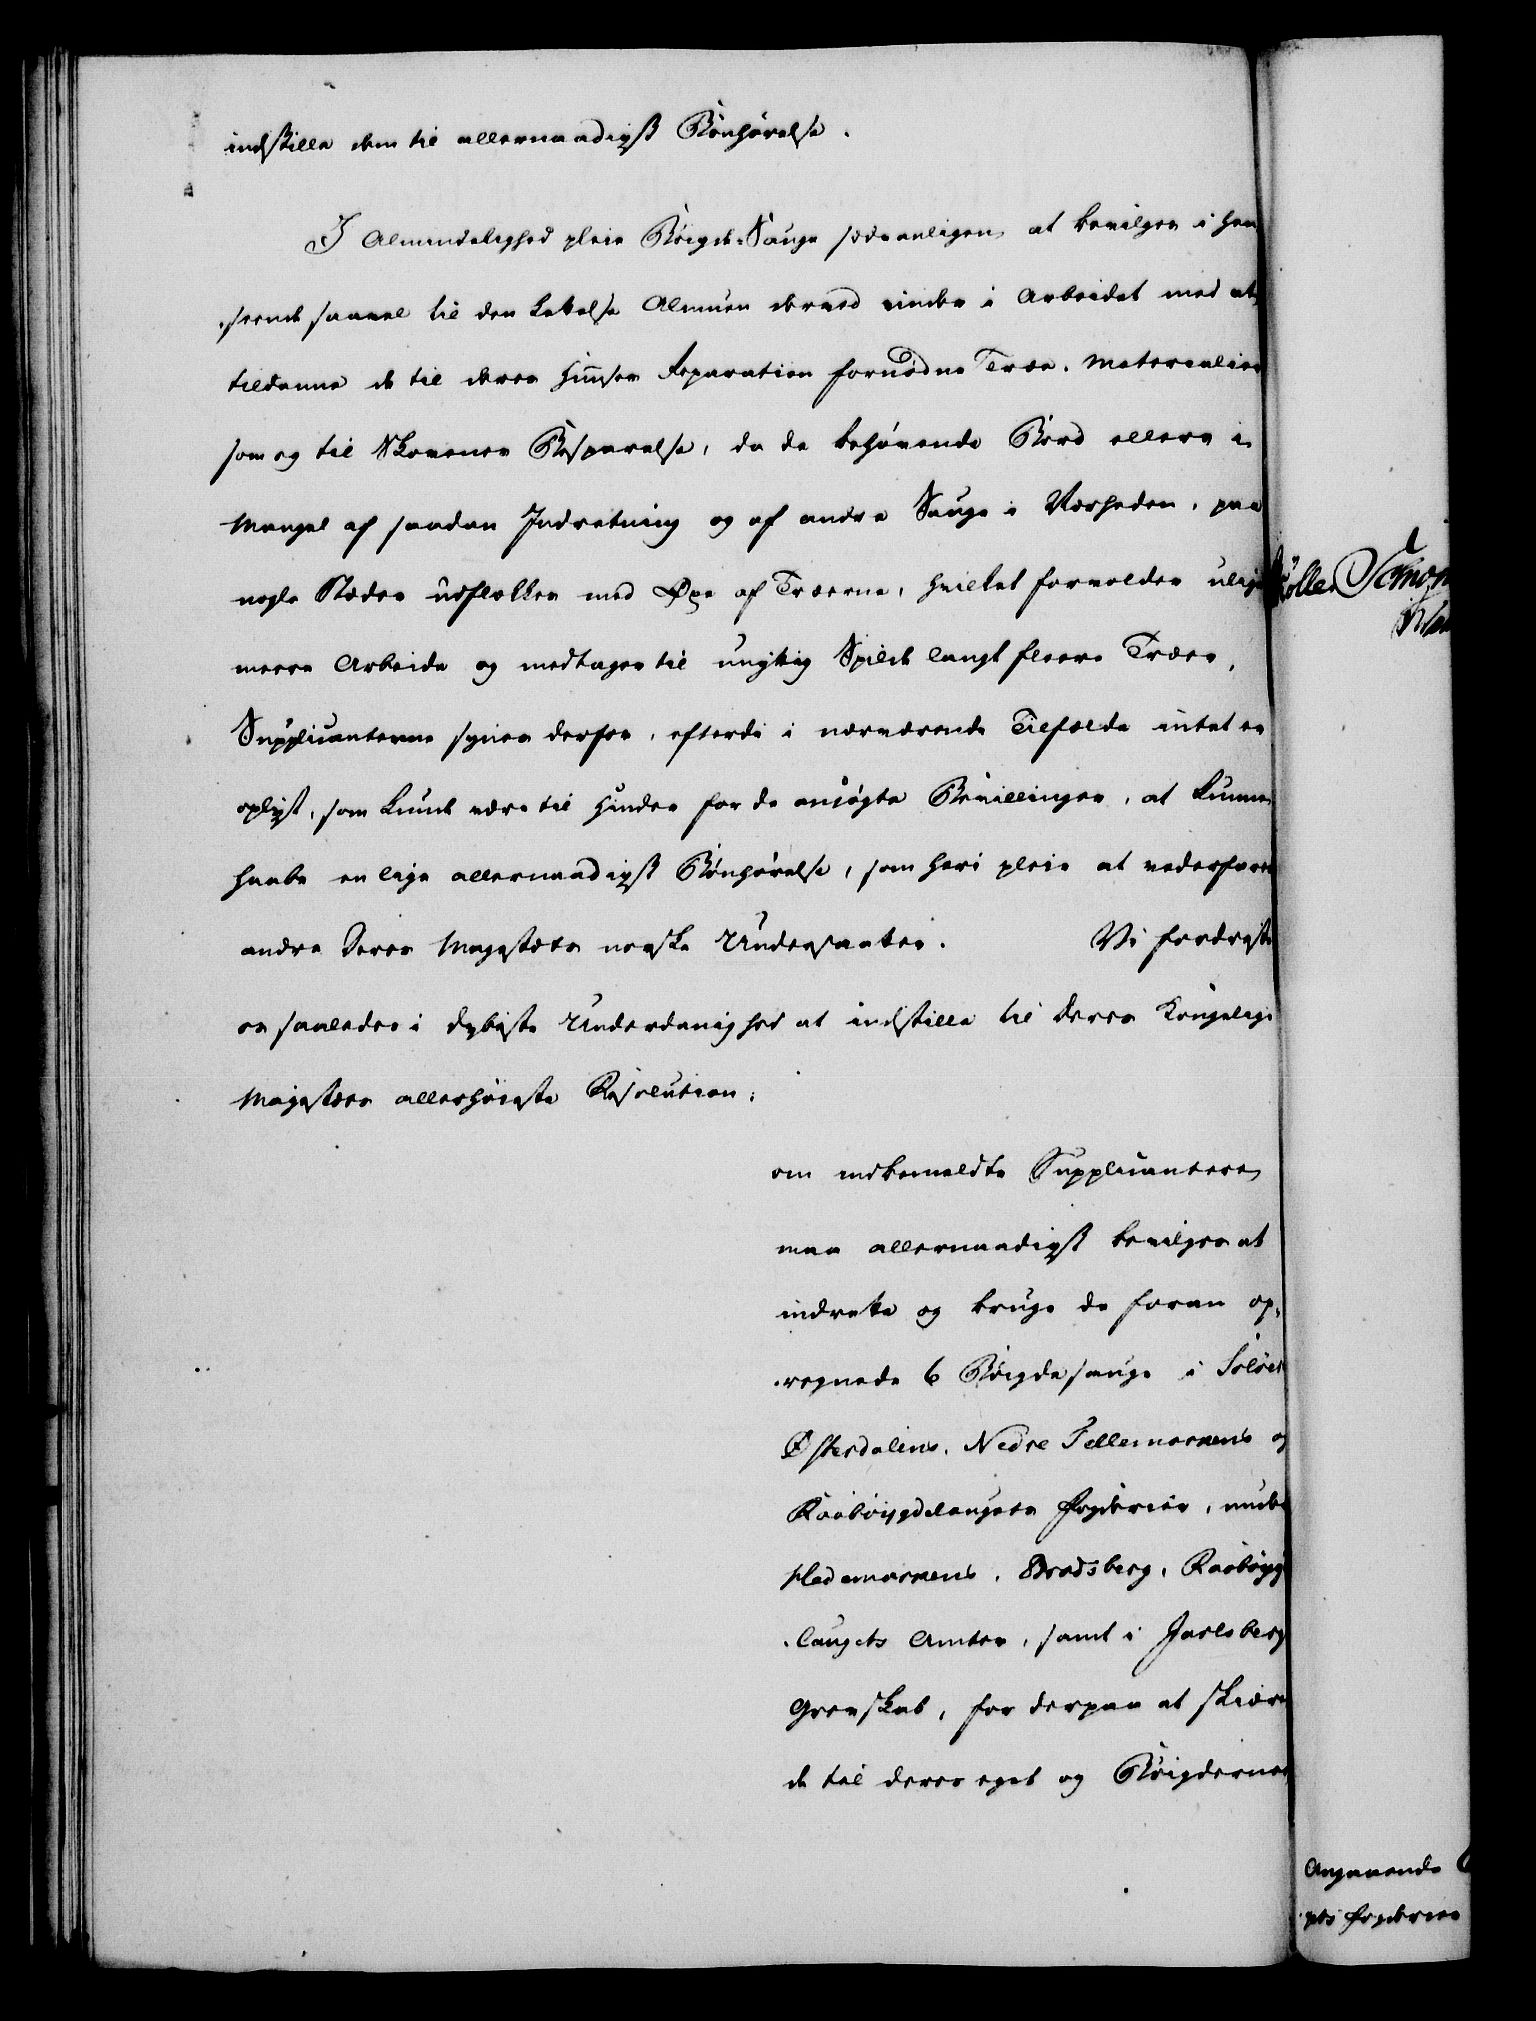 indstille dem til allernaadigst Bönhörelse.
I Almindelighed pleie Böigde-Sauge sædvanligen at bevilges i Hen
seende saavel til den Lettelse Almuen derved vinder i Arbeidet med at
tildanne de til deres Huuses Reparation fornödne Træe-Materialier
som og til Skovenes Besparelse, da de behövende Bord ellers i
Mangel af saadan Indretning og af andre Sauge i Nærheden, paa
nogle Stæder udflækkes med Øxe af Træerne, hvilket forvolder ulige
meere Arbeide og medtager til unyttig Spilde langt fleere Træer,
Supplicanterne synes derfor, efterdi i nærværende Tilfælde intet er
oplyst, som kunde være til Hinder for de ansögte Bevillinger, at kunne
haabe en lige allernaadigst Bönhörelse, som heri pleie at vederfares
andre Deres Majestæts norske Undersaatter. Vi fordriste
os saaledes i dybeste Underdanighed at indstille til Deres Kongelige
Majestæts allerhöieste Resolution:
om indbemeldte Supplicantere
maa allernaadigst bevilges at
indrette og bruge de foran op-
regnede 6 Böigdesauge i Solöer
Østerdalens, Nedre Tellemarkens og
Raabÿgdelaugets Fogderier, under
Hedemarkens, Bradsberg, Raabÿg
laugets Amter, samt i Jarlsberg
Grevskab, for derpaa at skiære
de til deres eget og Böigdernes
Angaaende
gets Fogderier